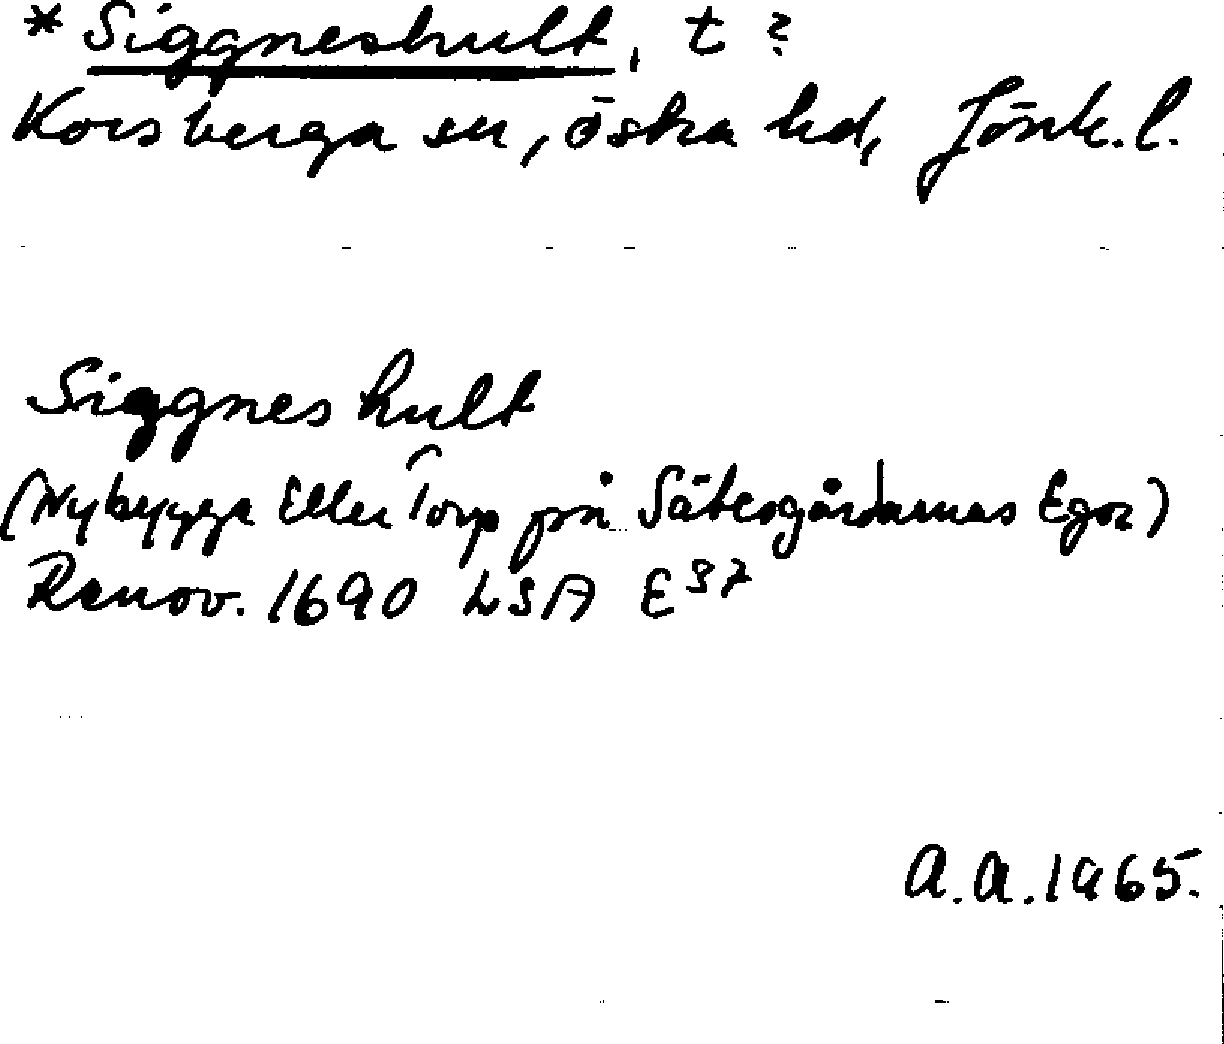 * Siggneshult, t ?
Korsberga sn, östra hd, Jönk. l.
Siggneshult
(Nybygge Eller Torp på Sätesgårdarnas Egor)
Renov. 1690 LSA E 37
A.A. 1965.